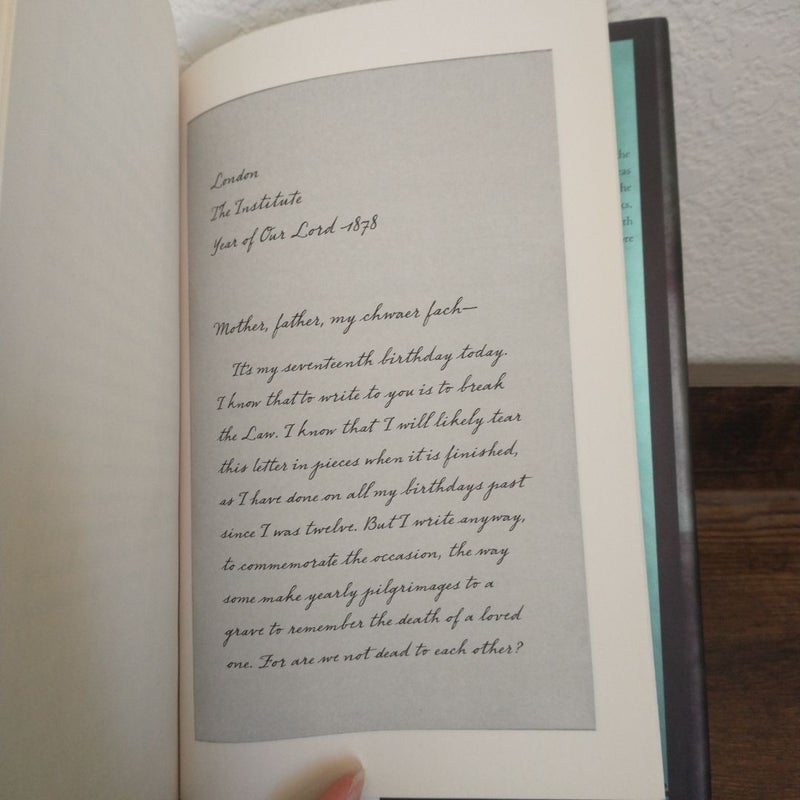 London
The Institute
Year of Our Lord 1878
Mother, father, my chwaer fach—
It's my seventeenth birthday today.
I know that to write to you is to break
the Law. I know that I will likely tear
this letter in pieces when it is finished,
as I have done on all my birthdays past
since I was twelve. But I write anyway,
to commemorate the occasion, the way
some make yearly pilgrimages to a
grave to remember the death of a loved
one. For are we not dead to each other?
he
as
he
ks.
th
ere